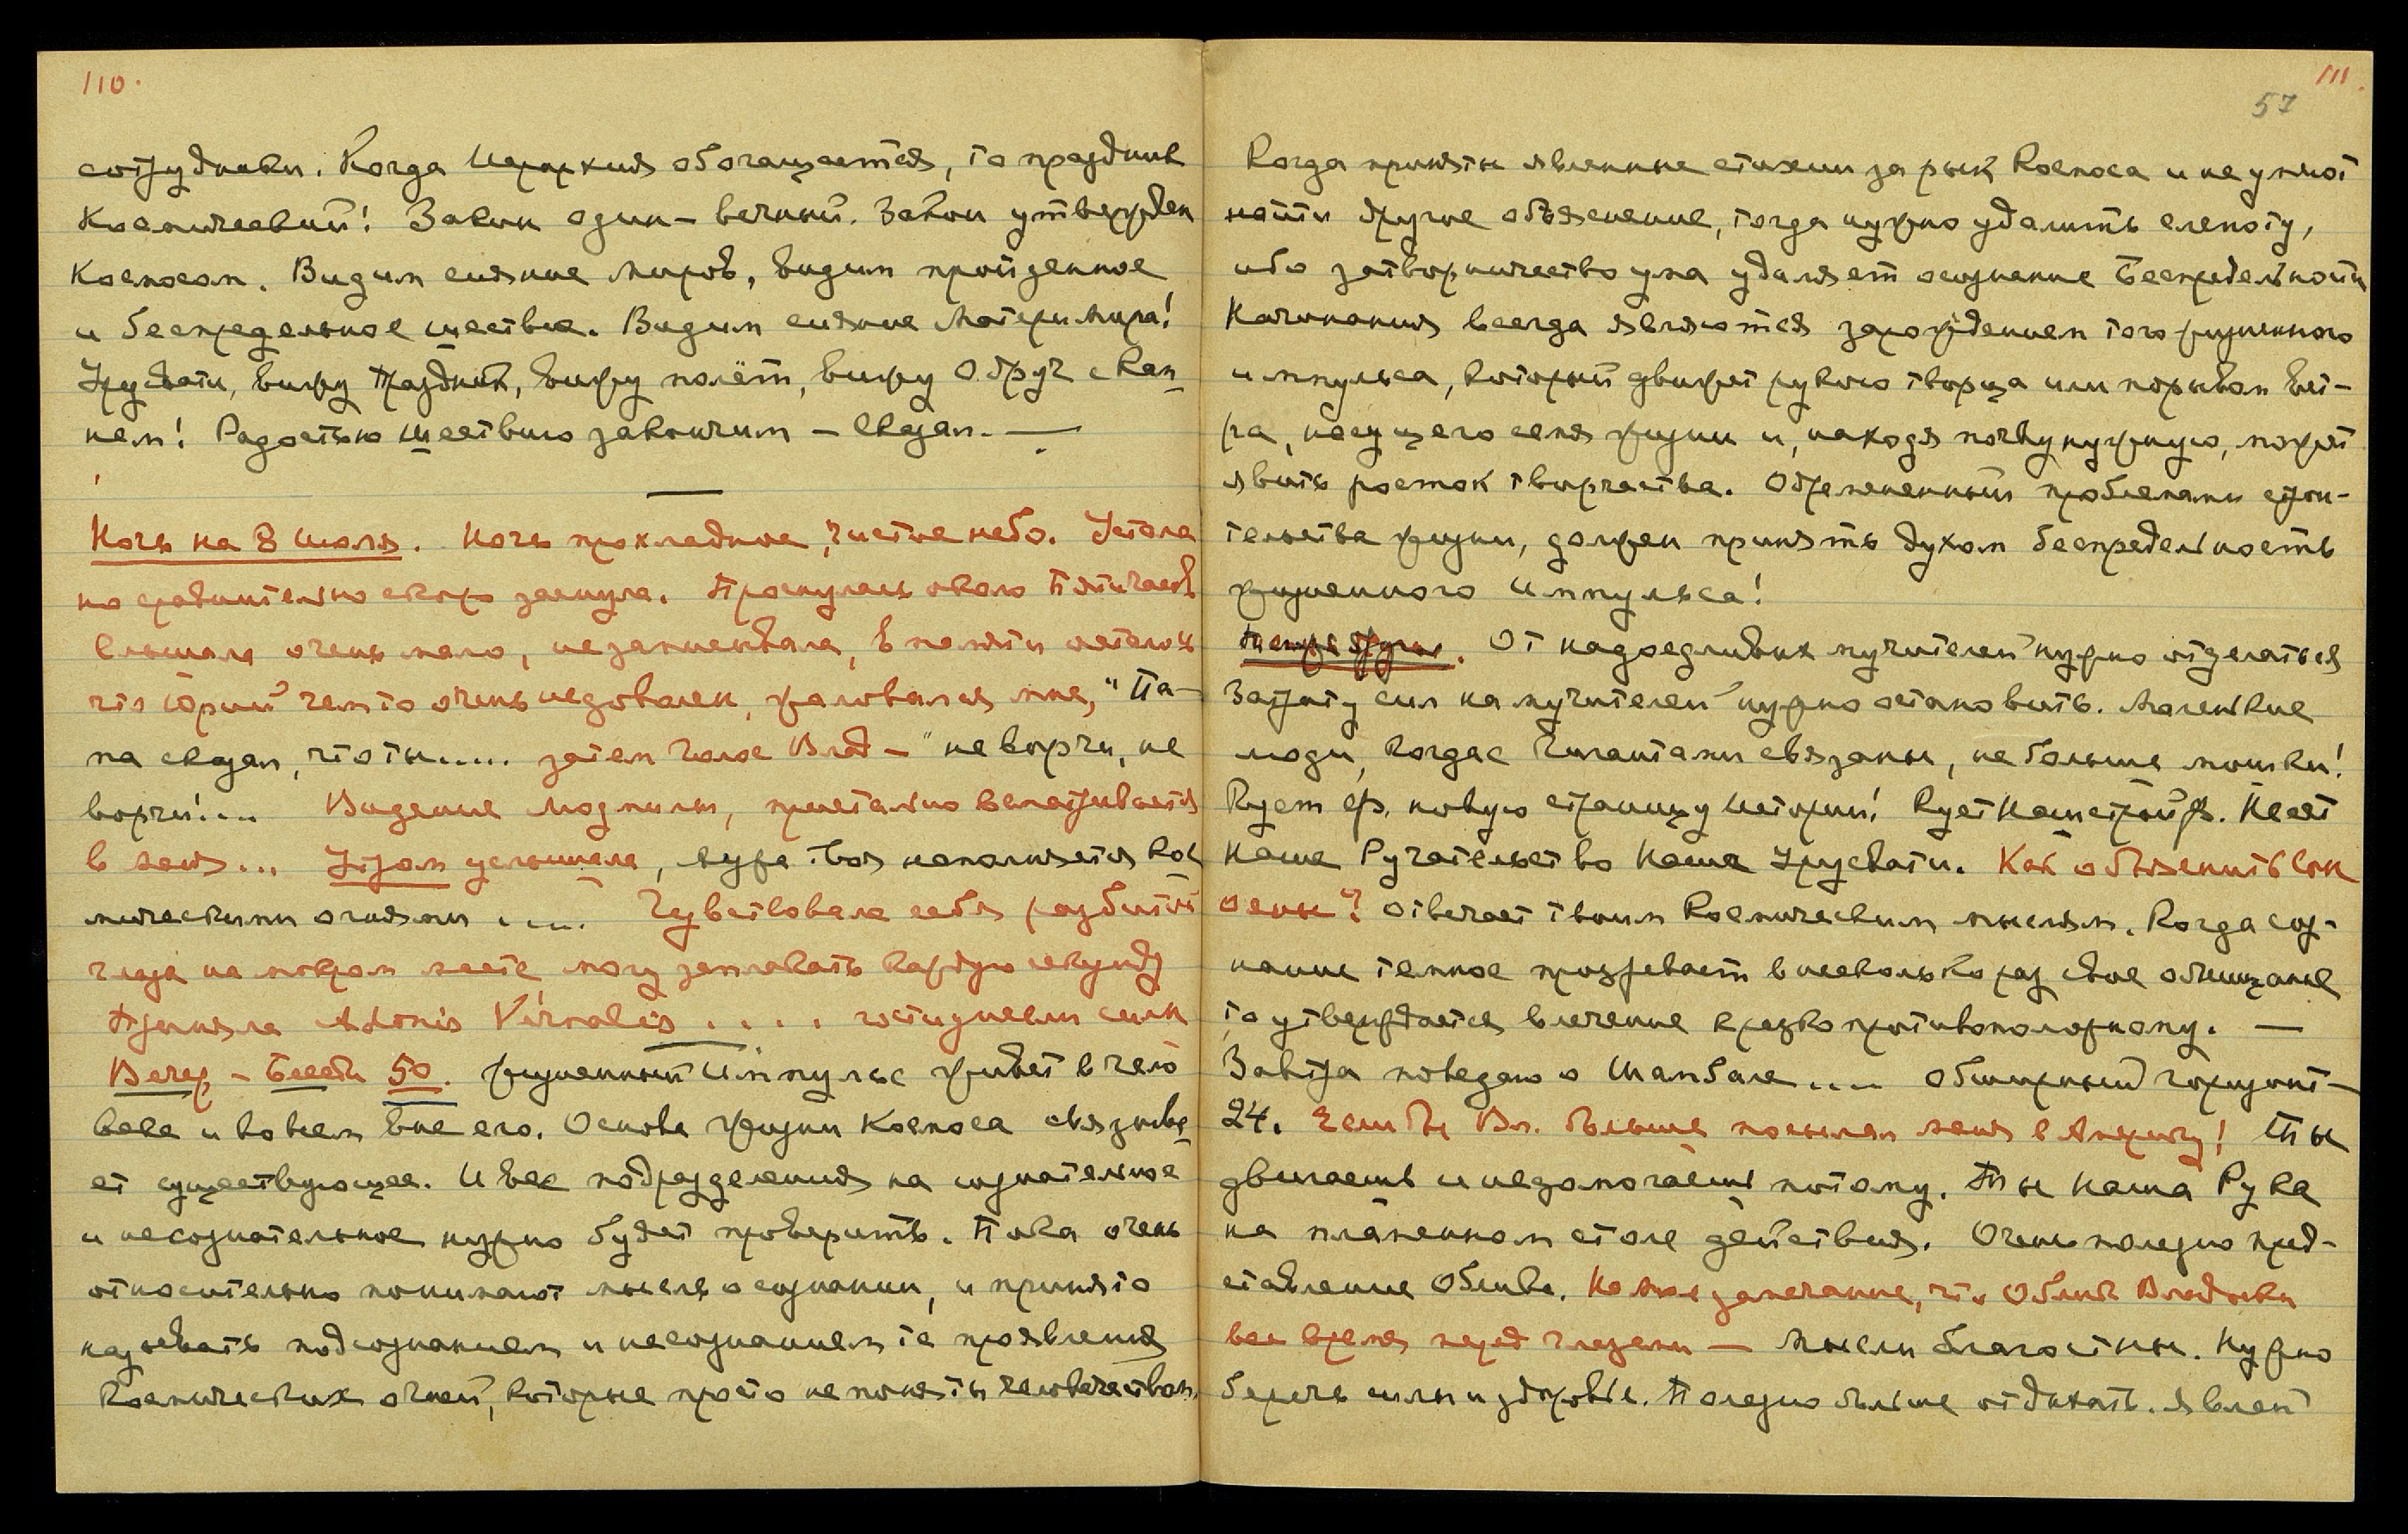 110.
сотрудники. Когда Иерархия обогащается, то праздник
Космический! Закон один – вечный. Закон утвержден
Космосом. Видим сияние миров, видим пройденное
и беспредельное шествие. Видим сияние Матери Мира!
Урусвати, вижу праздник, вижу полёт, вижу Обруч с Кам
нем! Радостью шествию закончим – сказал. —
Ночь на 8 июля. Ночь прохладная, чистое небо. Устала
но сравнительно скоро заснула. Проснулась около пяти часов
Слышала очень мало, не записывала, в памяти осталось
что Юрий чем то очень недоволен, жаловался мне, "Па-
па сказал, что ты..... затем голос Влад – "не ворчи, не
ворчи!... Видение Людмилы, пристально всматривается
в меня... Утром услышала, аура твоя наполняется Кос
мическими огнями .... Чувствовала себя разбитой
глаза на мокром месте, могу заплакать каждую секунду
Приняла Adonis Vernalis . . . . сил
Вечер – Беседа 50. Жизненный Импульс живет в чело
веке и во всем вне его. Основа жизни Космоса связыва
ет существующее. И все подразделения на сознательное
и несознательное нужно будет проверить. Пока очень
относительно понимают мысль о сознании, и принято
называть подсознанием и несознанием те проявления
Космических огней, которые просто не поняты человечеством.
111.
57
Когда приняты явленные стихии за рык Космоса и не умеют
найти другое объяснение, тогда нужно удалить слепоту,
ибо затворничество ума удаляет осознание Беспредельности
Начинания всегда являются зарождением того жизненного
импульса, который движет рукою творца или порывом вет-
ра, несущего семя жизни и, находя почву нужную, может
явить росток творчества. Обремененный проблемами строи-
тельства жизни, должен принять духом беспредельность
жизненного Импульса!
От надоедливых мучителей нужно отделаться
Затрату сил на мучителей нужно остановить. Маленькие
люди, когда с Гигантами связаны, не больше мошки!
Кует ф. новую страницу Истории! Кует Наш ф. Несет
Наше Ручательство Наша Урусвати. Как объяснить сон
Отвечает твоим Космическим мыслям. Когда соз-
нание темное прозревает в несколько раз свое обещание
то утверждается влечение к резко противоположному. —
Завтра поведаю о Шамбале.... обширный горизонт –
24. Если бы Вл. больше посылал меня в Америку! Ты
двигаешь и недомогаешь потому. Ты Наша Рука
на пламенном столе действия. Очень полезно пред-
ставление Облика. На мое замечание, что Облик Владыки
все время перед глазами — Мысли благостны. Нужно
беречь силы и здоровье. Полезно больше отдыхать. Явлен